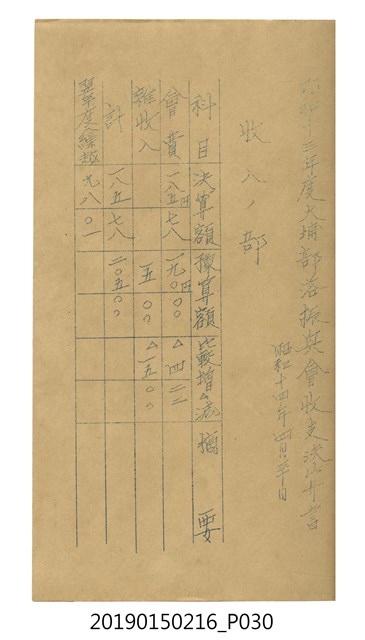 昭和十三年度大埔部落振興會收支決算書
昭和十四年四月 日
收入ノ部
科目 決算額 豫算額 比較增△減 摘要
會費 一八五円七八 一九〇円〇〇 △四二二
雜收入 一五〇〇 △一五〇〇
計 一八五七八 二〇五〇〇
翌年度繰越 九八〇一
20190150216_P030